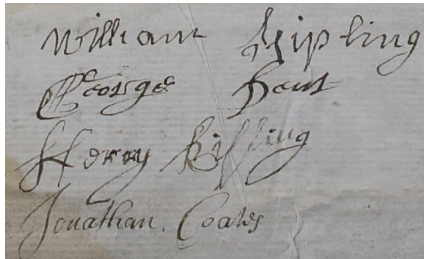 William Kipling
George Dent
Henry Kipling
Jonathan Coates